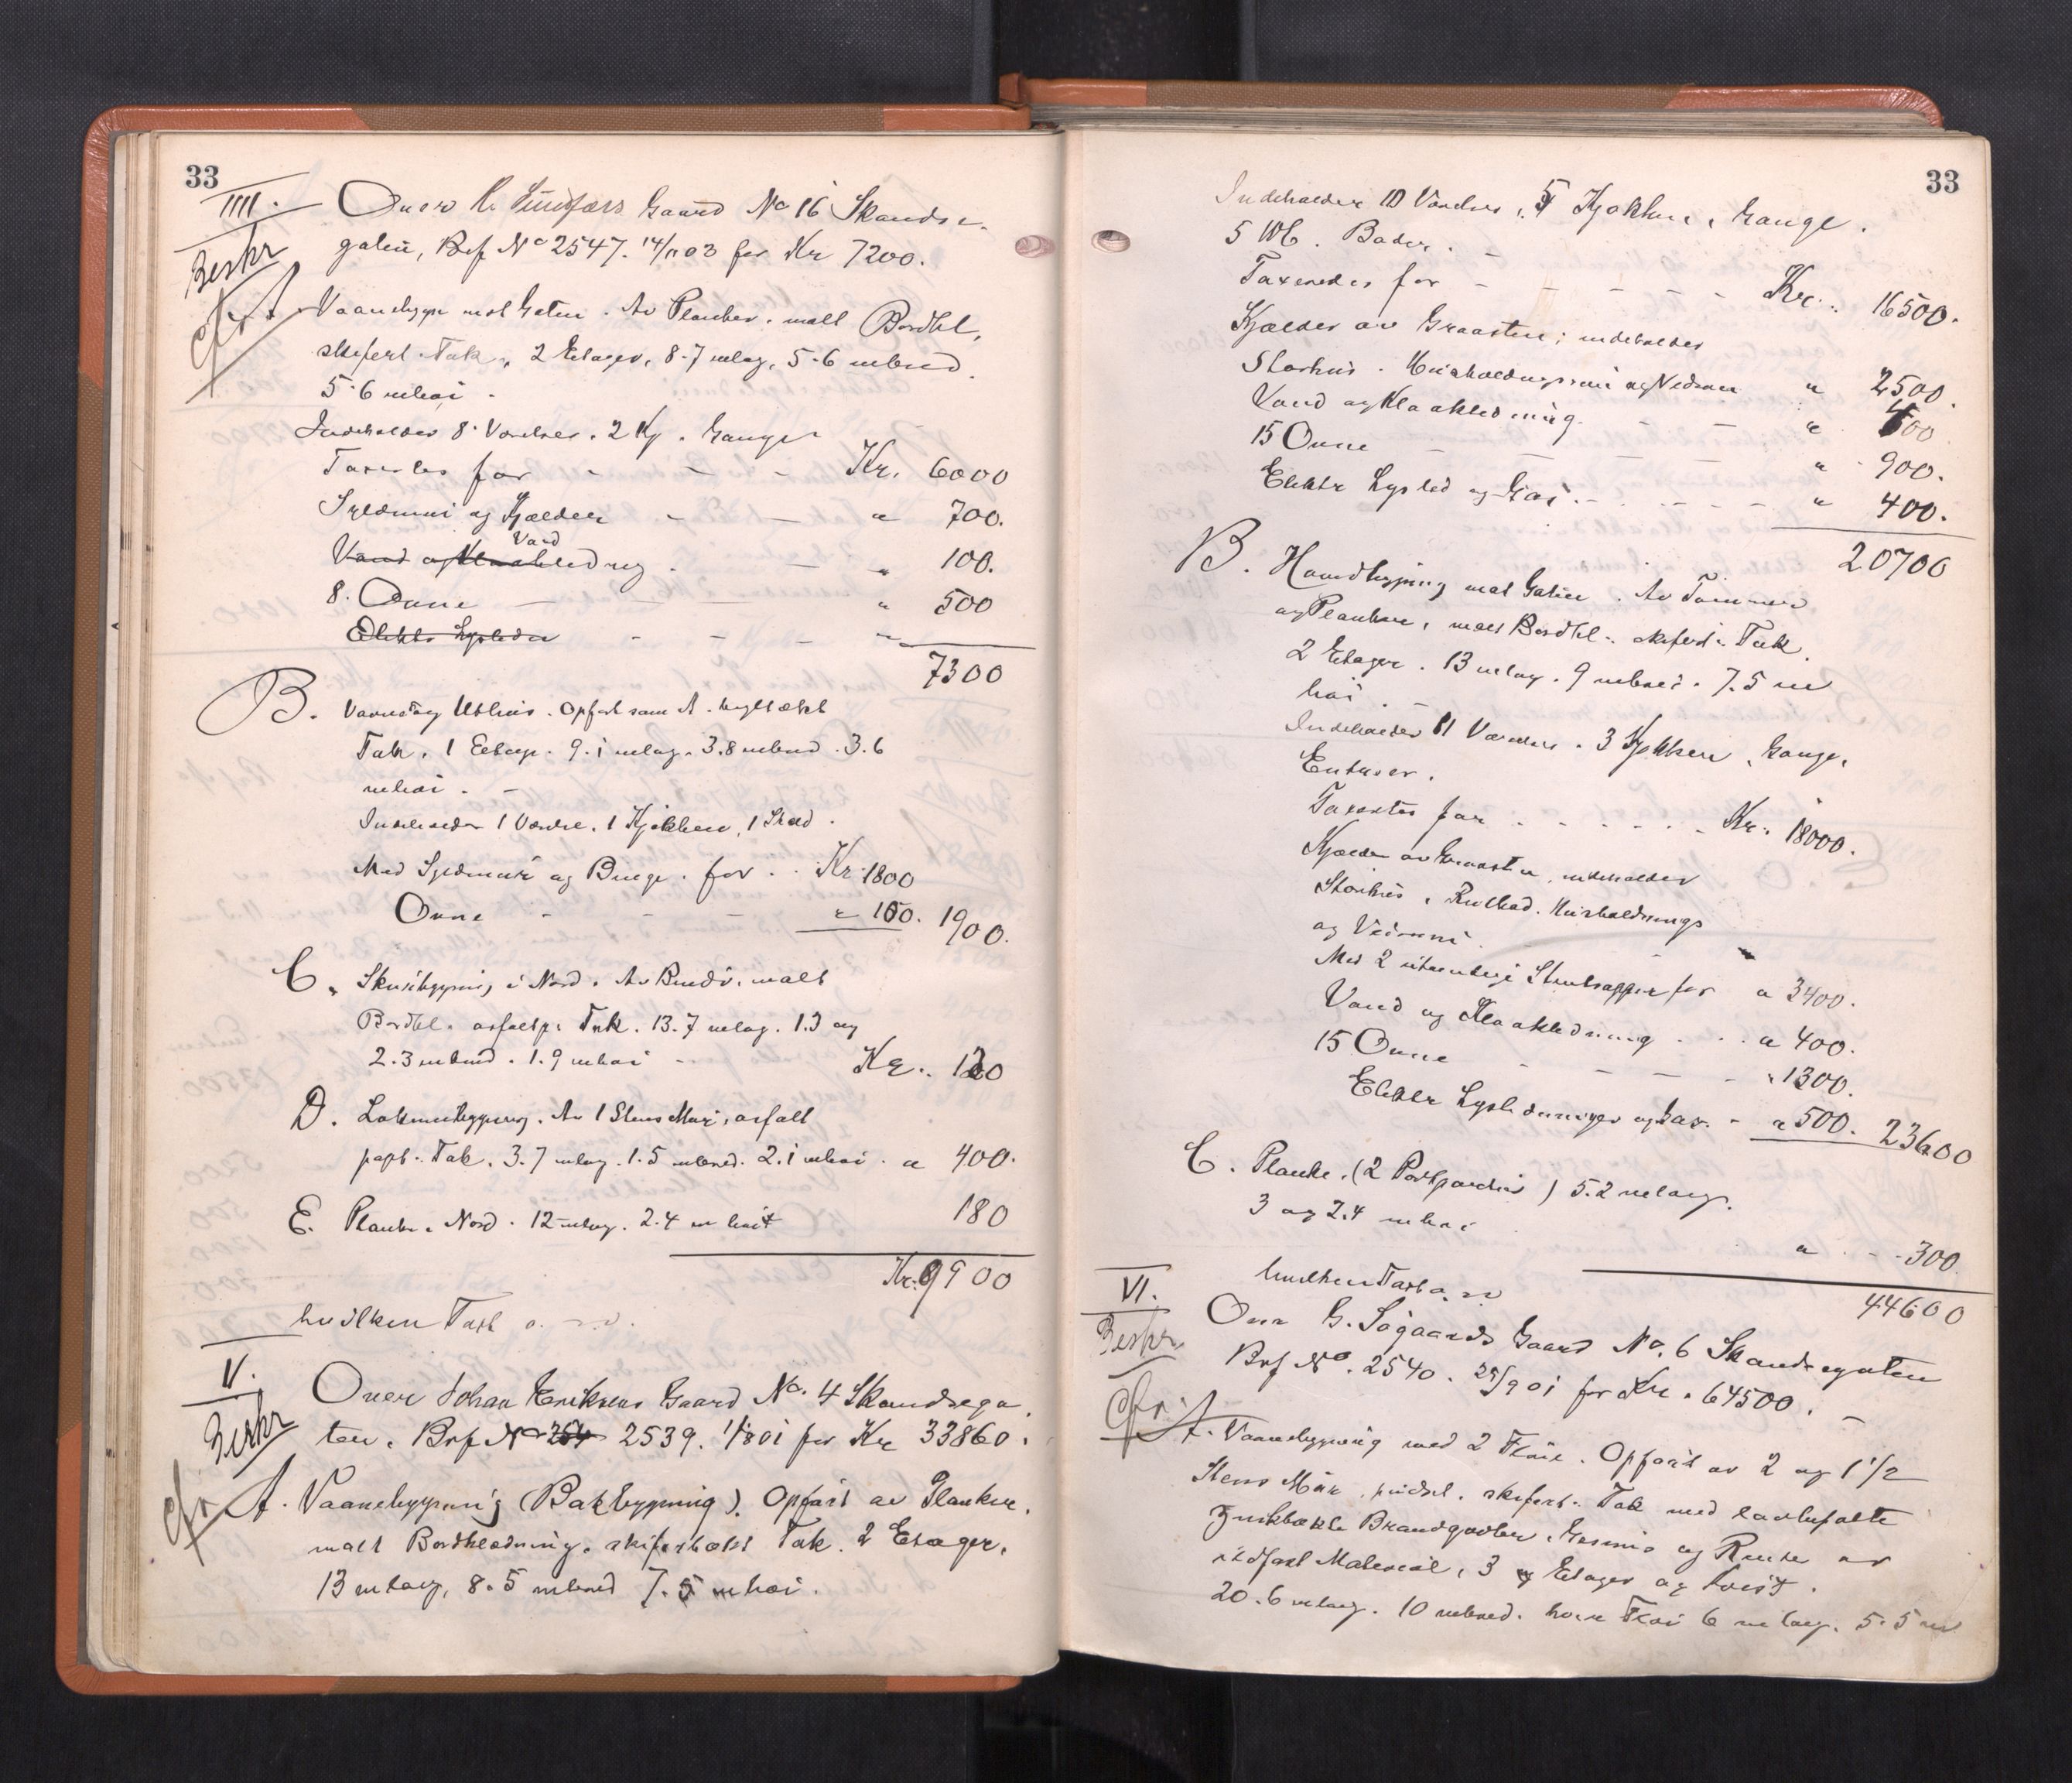 33
IIII. Over C. Sundførs Gaard No 16 Skandse-
Beskr gaten, Brf No 2547. 14/11 03 for Kr 7200.
cfr. A. Vaanebygn mot Gaten. Av Planker. malt Bordkl,
skifert. Tak. 2 Etager, 8.7 mlag, 5.6 mbred.
5.6 mhøi.
Indeholder 8 Værelser. 2 Kj. Gange
Taxertes for - - - Kr. 6000
Syldmur og Kjælder - - " 700.
Vand og Kloakledning Vand - " 100.
8. Ovne - - " 500
Elektr Lysledn - - - "
7300
B. Vaanebyg Uthus. Opført som A. teglt ækt
Tak. 1 Etage. 9.1 mlag. 3.8 mbred. 3.6
mhøi. -
Indeholder 1 Værelse. 1 Kjøkken, 1 Stad.
Med Syldmur og Bislag. for . . Kr. 1800
Ovne - - - " 100. 1900.
C. Skurbygning i Nord. Av Bindv. malt
Bordkl. asfaltp. Tak. 13.7 mlag. 1.3 og
2.3 mbred. 1.9 mhøi - Kr. 120
D. Latrinebygning. Av 1 Stens Mur, asfalt
papt. Tak. 3.7 mlag. 1.5 mbred. 2.1 mhøi. " 400.
E. Planke i Nord. 12 mlag. 2.4 m høit 180
Kr. 9900
hvilken Taxt o. s. v.
V. Over Johan Eriksens Gaard No. 4 Skandsega
Beskr ten. Brf No 254 2539. 1/8 01 for Kr 33860.
cfr A. Vaanebygning (Bakbygning). Opført av Planker.
malt Bordklædning. skifertækt Tak. 2 Etager.
13 mlang, 8.5 mbred 7.5 mhøi.
33
Indeholder 10 Værelser, 5 Kjøkken, Gange.
5 WC. Badev. -
Taxeredes for - - - - - Kr. 16500.
Kjælder av Graasten; indeholder
Storhus. Husholdningsrum og Vedrum " 2500.
Vand og Kloakledning. - - " 400
15 Ovne - - - - " 900.
Elektr Lysled og Gas. - - - - " 400.
20700
B. Hovedbygning mot Gaten. Av Tømmer
og Planker, malt Bordkl. skifert. Tak.
2 Etager. 13 mlag. 9 mbred. 7.5 m
høi.
Indeholder 11 Værelser. 3 Kjøkken, Gange,
Entreer.
Taxertes for - - - - - - Kr. 18000.
Kjælder av Graasten, indeholder
Storhus, Rulbod. Husholdnings
og Vedrum. -
Med 2 utvendige Stentrapper for " 3400.
Vand og Kloakledning . . . " 400.
15 Ovne - - - - " 1300.
Elektr Lysledninger og Gas. - " 500. 23600
C. Planke. (2 Portpartier) 5.2 mlang.
3 og 2.4 mhøi " - - 300.
44600
hvilken Taxt o. s. v
VI. Over G. Søgaards Gaard No. 6 Skandsegaten
Beskr Brf No. 2540. 25/9 01 for Kr. 64500. -
cfr. A. Vaanebygning med 2 Fløie. Opført av 2 og 1 1/2
Stens Mur, pudset. skifert. Tak med
zinktækte Brandgavler. Gesims og Rende av
ildfast Material, 3 Etager og Kvist.
20.6 mlang. 10 mbred. hver Fløi 6 m lang. 5.5 m